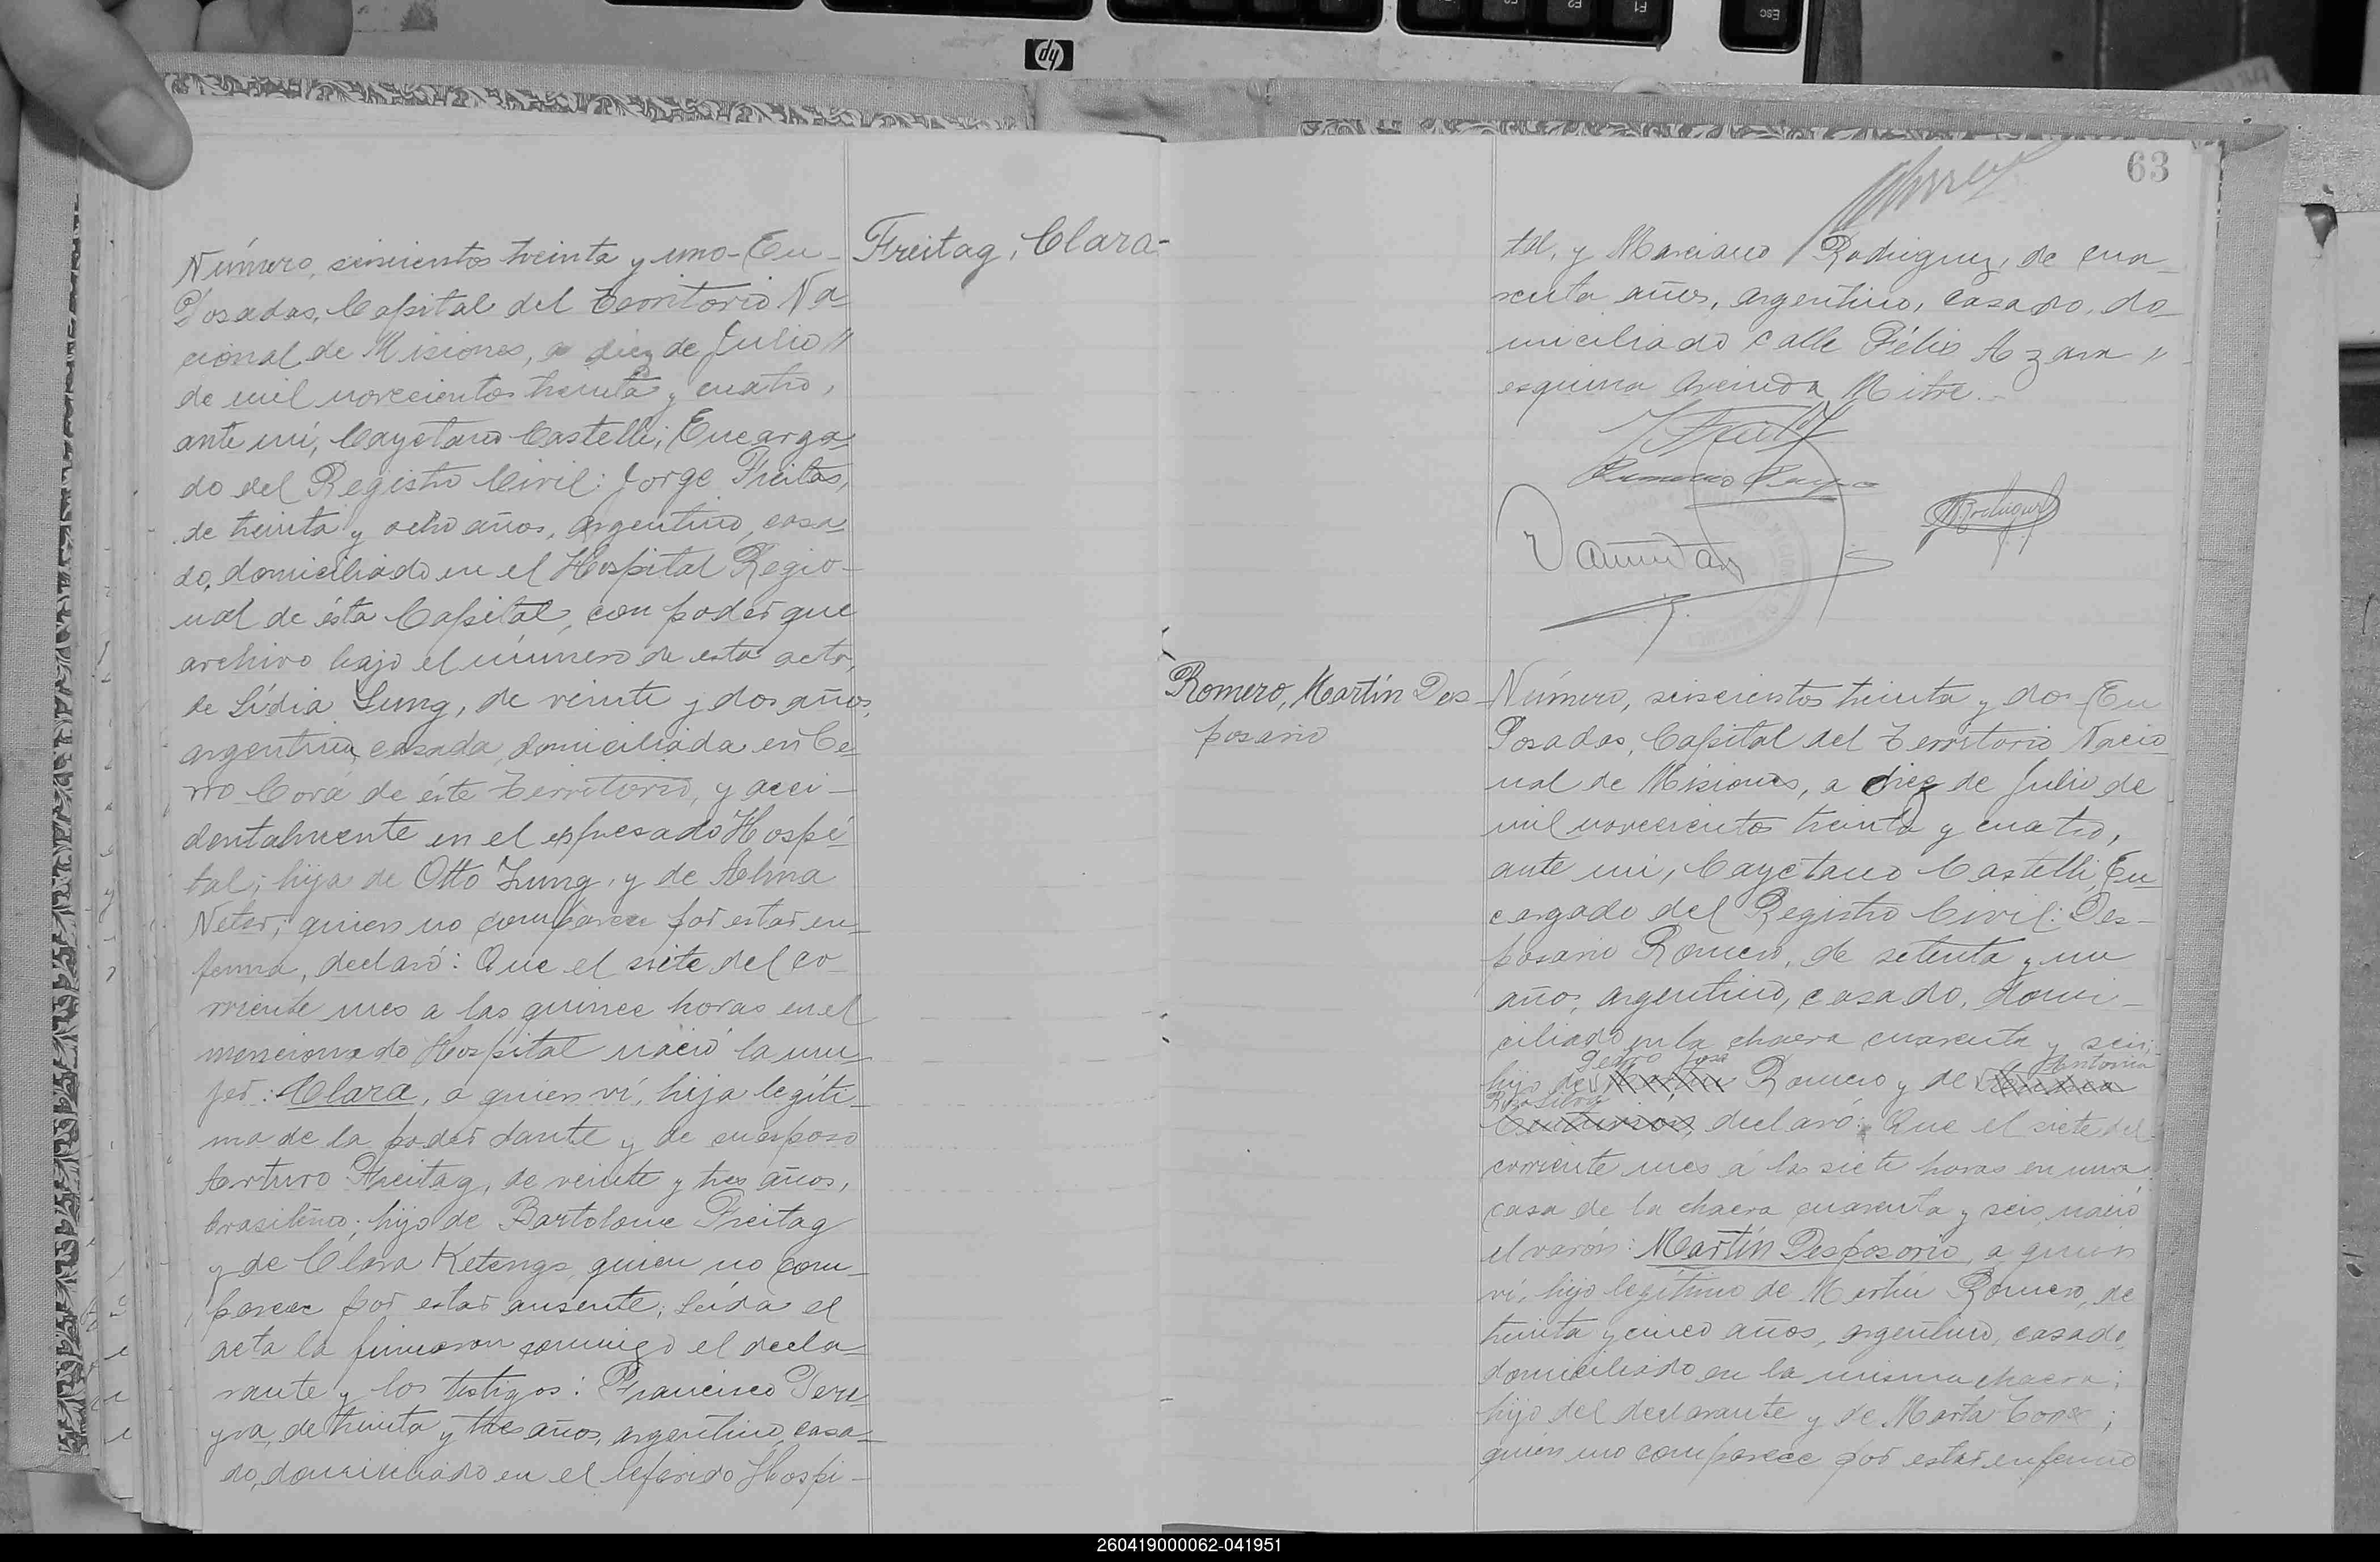 Número, seiscientos treinta y uno - En
Posadas, Capital del Territorio Na
cional de Misiones, a diez de Julio //
de mil novecientos treinta y cuatro,
ante mí, Cayetano Castelli, Encarga
do del Registro Civil: Jorge Freitas,
de treinta y ocho años, argentino, casa
do, domiciliado en el Hospital Regio-
nal de ésta Capital, con poder que
archivo bajo el número de esta acta,
de Lídia Lung, de veinte y dos años,
argentina, casada, domiciliada en Ce
rro Corá de éste Territorio, y acci-
dentalmente en el expresado Hospi
tal; hija de Otto Lung, y de Alma
Neter; quien no comparece por estar en
ferma, declaró: Que el siete del co
rriente mes a las quince horas en el
mencionado Hospital nació la mu
jer: Clara, a quien ví, hija legíti
ma de la poder dante y de su esposo
Arturo Freitag, de veinte y tres años,
brasileño; hijo de Bartolome Freitag
y de Clara Ketengs, quien no com
parece por estar ausente; Leída el
acta la firmaron conmigo el decla
rante y los testigos: Francisco Pere
yra, de treinta y tres años, argentino, casa
do, domiciliado en el referido Hospi-
Freitag, Clara-
63
tal, y Marciano Rodriguez, de cua
renta años, argentino, casado, do
miciliado calle Félix Azara //
esquina avenida Mitre.-
Romero, Martín Des
posorio
Número, seiscientos treinta y dos - En
Posadas, Capital del Territorio Nacio
nal de Misiones, a diez de Julio de
mil novecientos treinta y cuatro,
ante mí, Cayetano Castelli, En
cargado del Registro Civil: Des-
posorio Romero, de setenta y un
años, argentino, casado, domi-
ciliado en la chacra cuarenta y seis;
Pedro José Antonia
hijo de Martín Romero y de
Rosa Silva
declaró: Que el siete del
corriente mes á las siete horas en una
casa de la chacra cuarenta y seis, nació
el varón: Martín Desposorio, a quien
ví, hijo legítimo de Martín Romero, de
treinta y cinco años, argentino, casado,
domiciliado en la misma chacra;
hijo del declarante y de Marta
quien no comparece por estar enfermo
hp
Esc
F1
F2
260419000062-041951